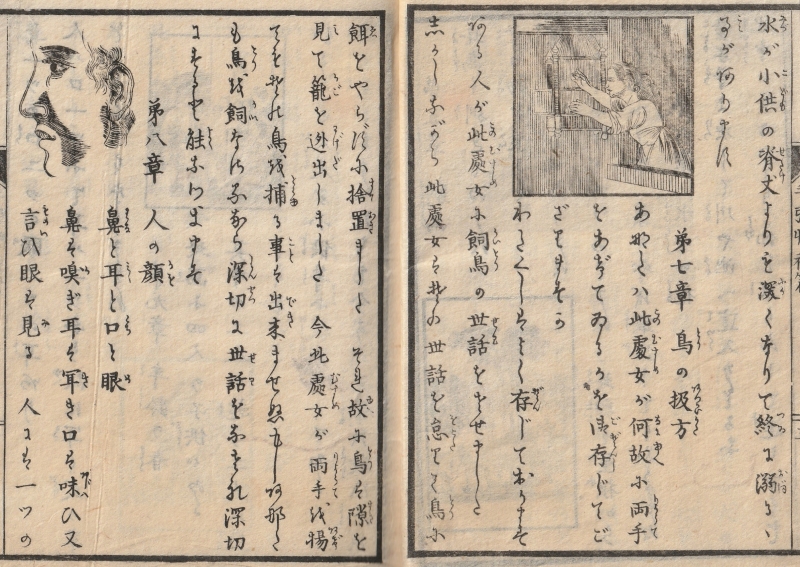 水が小供の脊丈よりも深くなりて終に溺るゝ
事が阿ります
第七章 鳥の扱方
あなたハ此處女が何故に両手
をあげてゐるかを御存じでご
ざりますか
わたくしはよく存じております
阿る人が此處女に飼鳥の世話をさせました
志かしながら此處女は其の世話を怠りて鳥に
餌をやらずに捨置ました それ故に鳥は隙を
見て籠を逊出しました 今此處女が両手を揚
ても其れ鳥を捕る事は出来ませぬもし阿那た
も鳥を飼なれるなら深切に世話をなされ深切
にすると能なつきます
第八章 人の顔
鼻と耳と口と眼
鼻は嗅ぎ耳は耳き口は味ひ又
言ひ眼は見る 人には一ツの